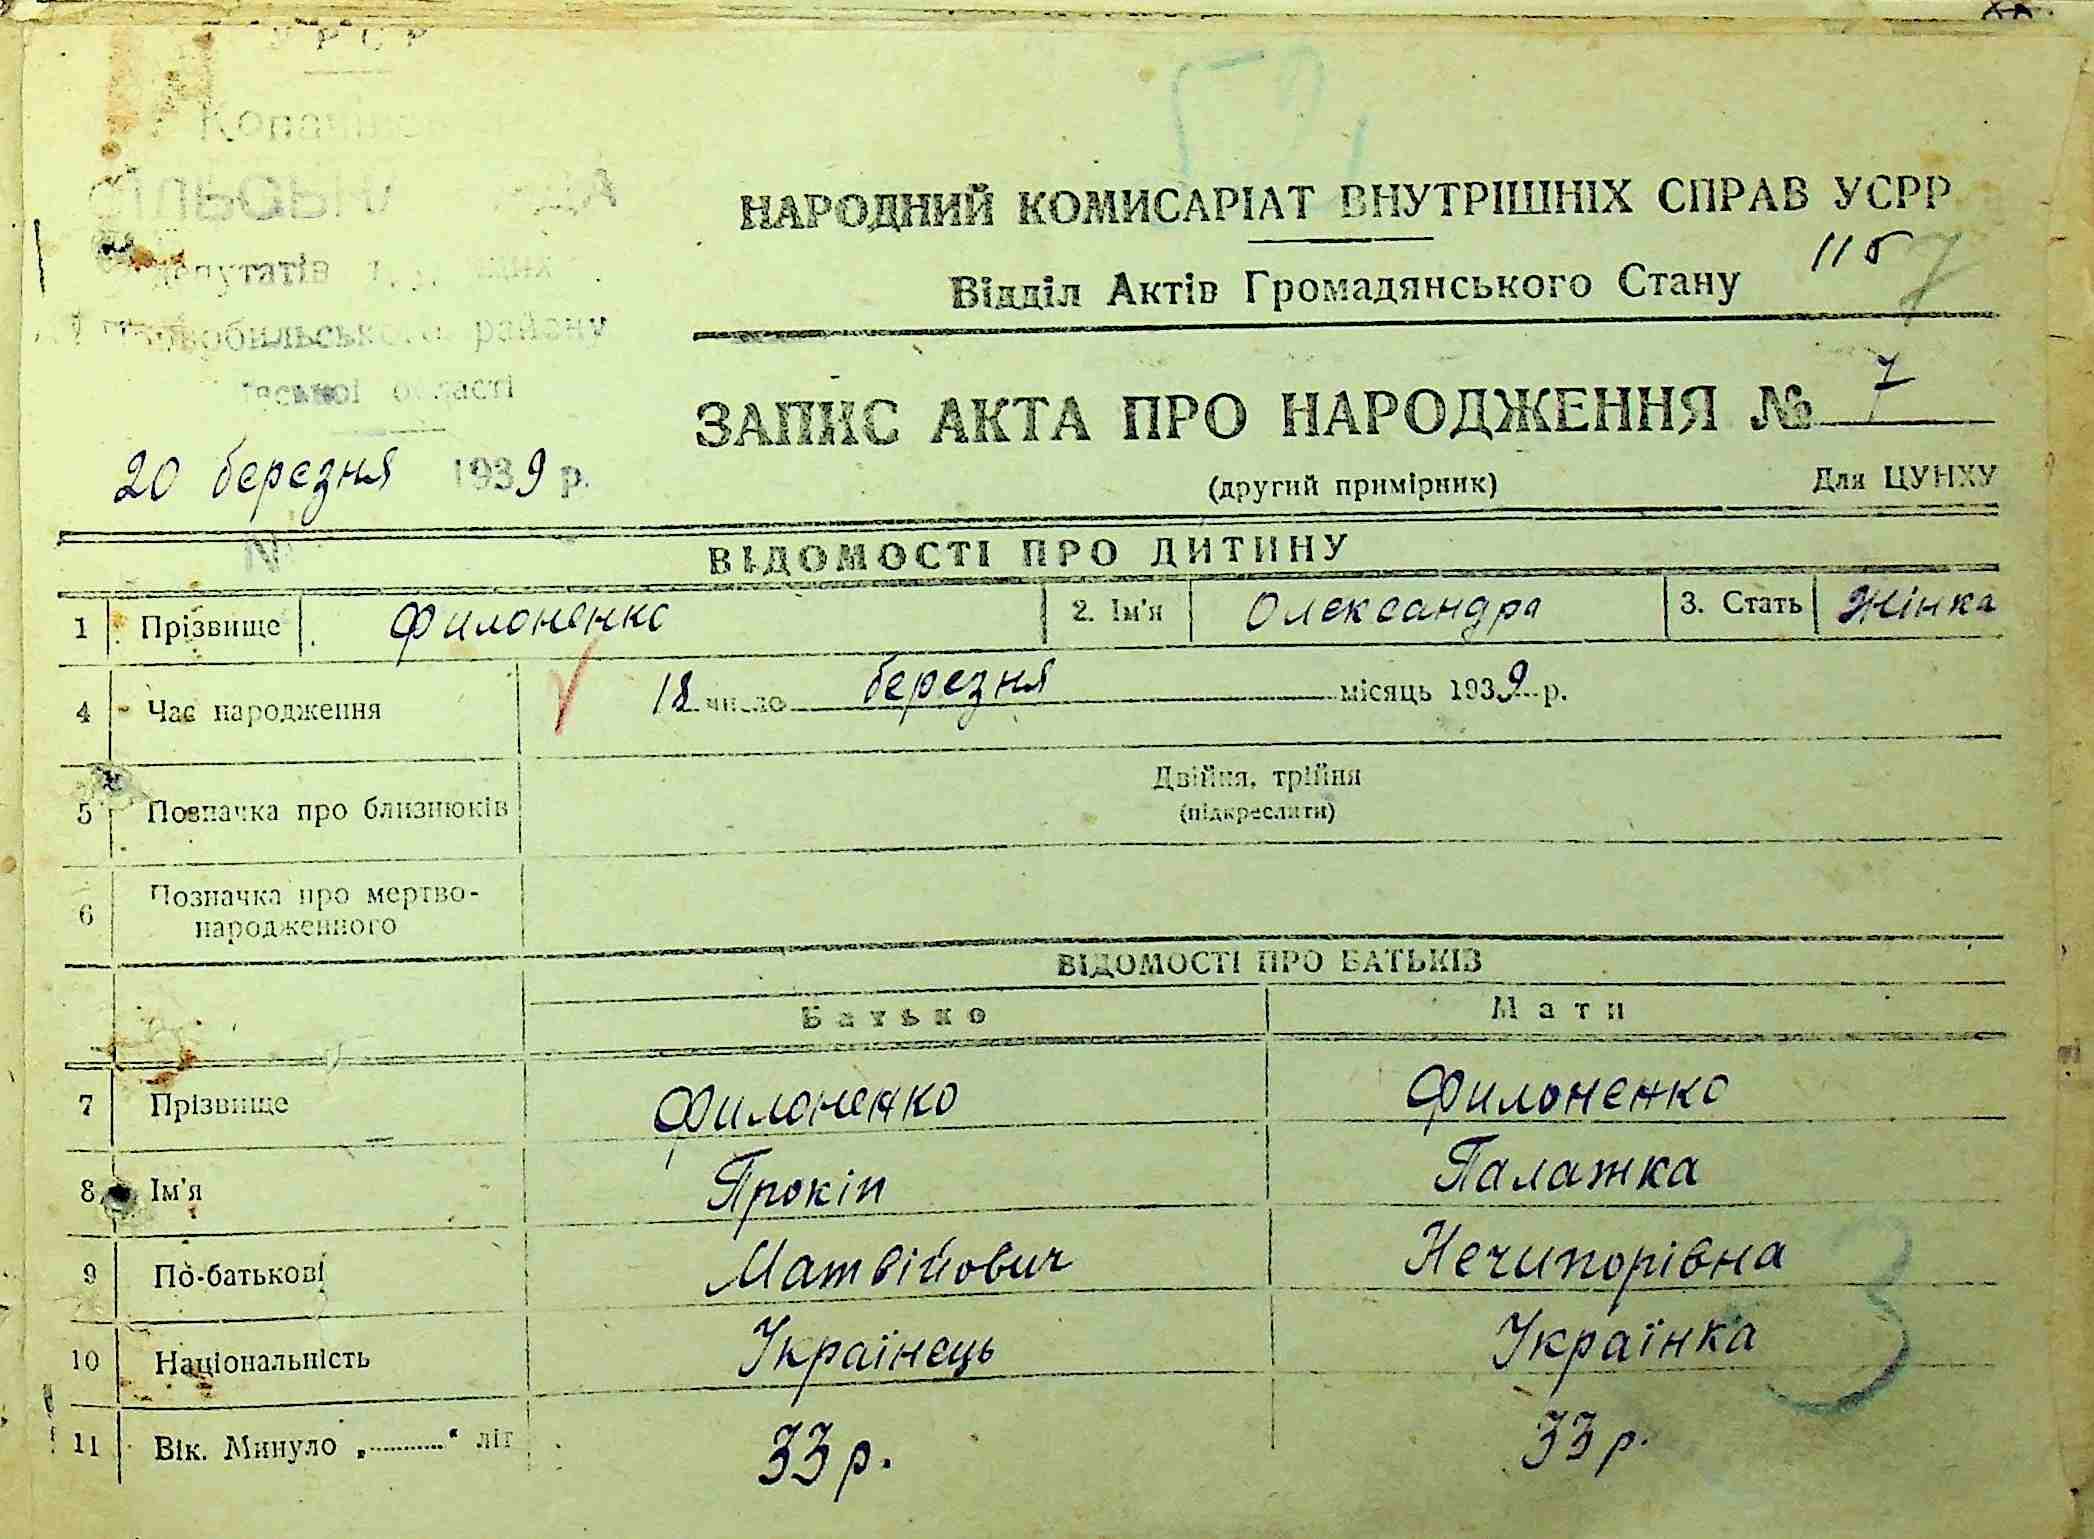 УРСР
депутатів
району
області
20 березня 1939 р.
НАРОДНИЙ КОМИСАРІАТ ВНУТРІШНІХ СПРАВ УСРР
Відділ Актів Громадянського Стану
ЗАПИС АКТА ПРО НАРОДЖЕННЯ № 7
(другий примірник) Для ЦУНХУ
ВІДОМОСТІ ПРО ДИТИНУ
1 Прізвище Филоненко 2. Ім'я Олександра 3. Стать Жінка
4 Час народження 18 число березня місяць 1939 р.
5 Позначка про близнюків Двійня, трійня
(підкреслити)
6 Позначка про мертво-
народженного
ВІДОМОСТІ ПРО БАТЬКІВ
Батько Мати
7 Прізвище Филоненко Филоненко
8 Ім'я Прокіп Палажка
9 По-батькові Матвійович Нечипорівна
10 Національність Українець Українка
11 Вік. Минуло „..........“ літ 33 р. 33 р.